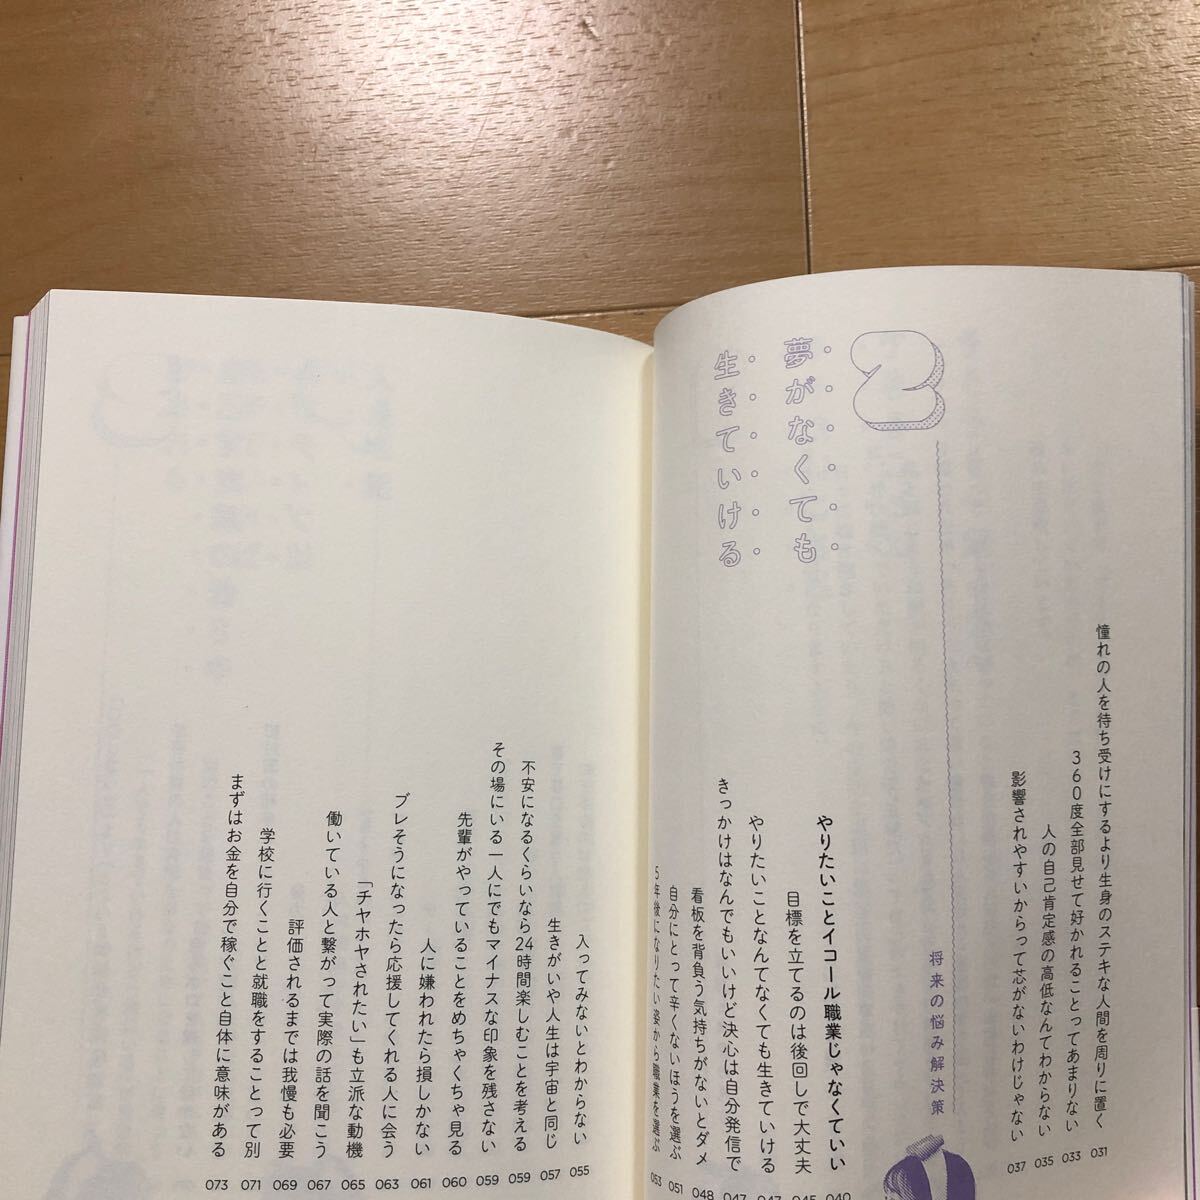 憧れの人を待ち受けにするより生身のステキな人間を周りに置く 031
360度全部見せて好かれることってあまりない 033
人の自己肯定感の高低なんてわからない 035
影響されやすいからって芯がないわけじゃない 037
2
将来の悩み解決策
夢がなくても
生きていける
やりたいことイコール職業じゃなくていい 040
目標を立てるのは後回しで大丈夫 045
やりたいことなんてなくても生きていける 047
きっかけはなんでもいいけど決心は自分発信で 047
看板を背負う気持ちがないとダメ 048
自分にとって辛くないほうを選ぶ 051
5年後になりたい姿から職業を選ぶ 053
入ってみないとわからない 055
生きがいや人生は宇宙と同じ 057
不安になるくらいなら24時間楽しむことを考える 059
その場にいる一人にでもマイナスな印象を残さない 059
先輩がやっていることをめちゃくちゃ見る 060
人に嫌われたら損しかない 061
ブレそうになったら応援してくれる人に会う 063
「チヤホヤされたい」も立派な動機 065
働いている人と繋がって実際の話を聞こう 067
評価されるまでは我慢も必要 069
学校に行くことと就職をすることって別 071
まずはお金を自分で稼ぐこと自体に意味がある 073